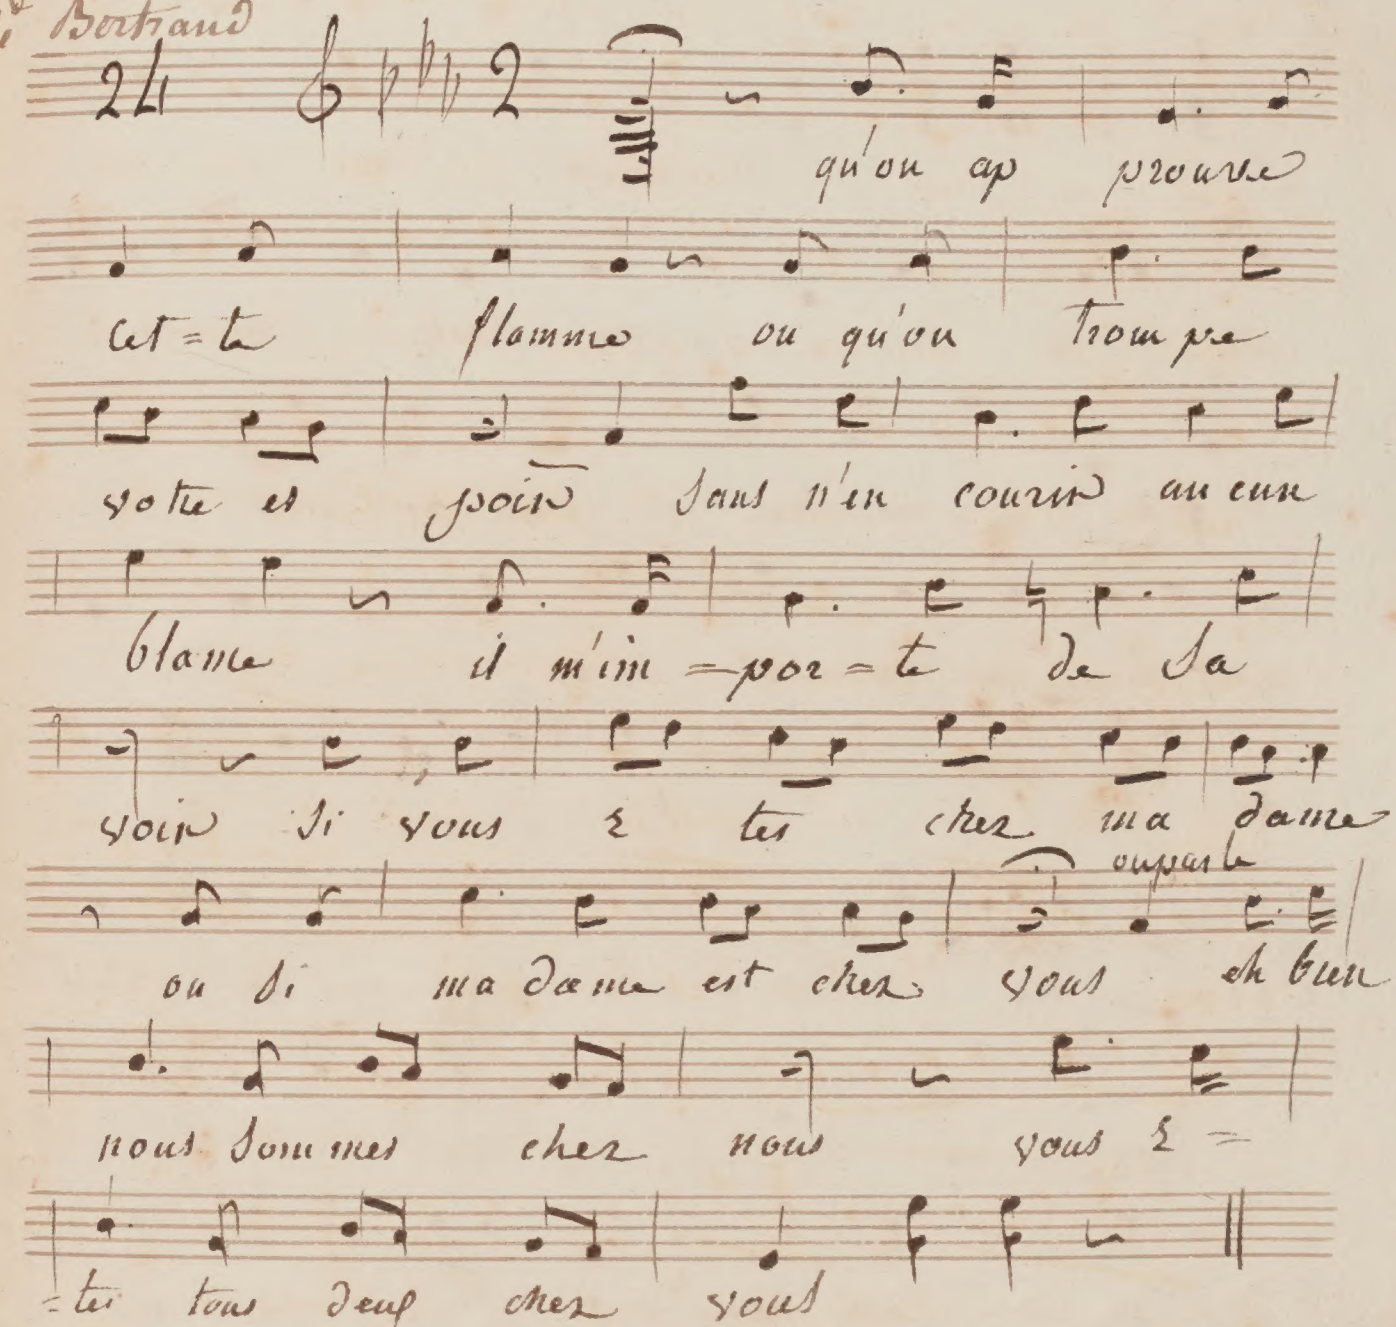 Bertrand
24 2
qu'on ap prouve
cet=te flamme ou qu'on trompe
votre es poir sans n'en courir aucun
blame il m'im =por=te de sa
voir si vous ê tes chez ma dame
ou parle
ou si ma dame est chez vous eh bien
nous sommes chez nous vous ê=
=tes tous deux chez vous